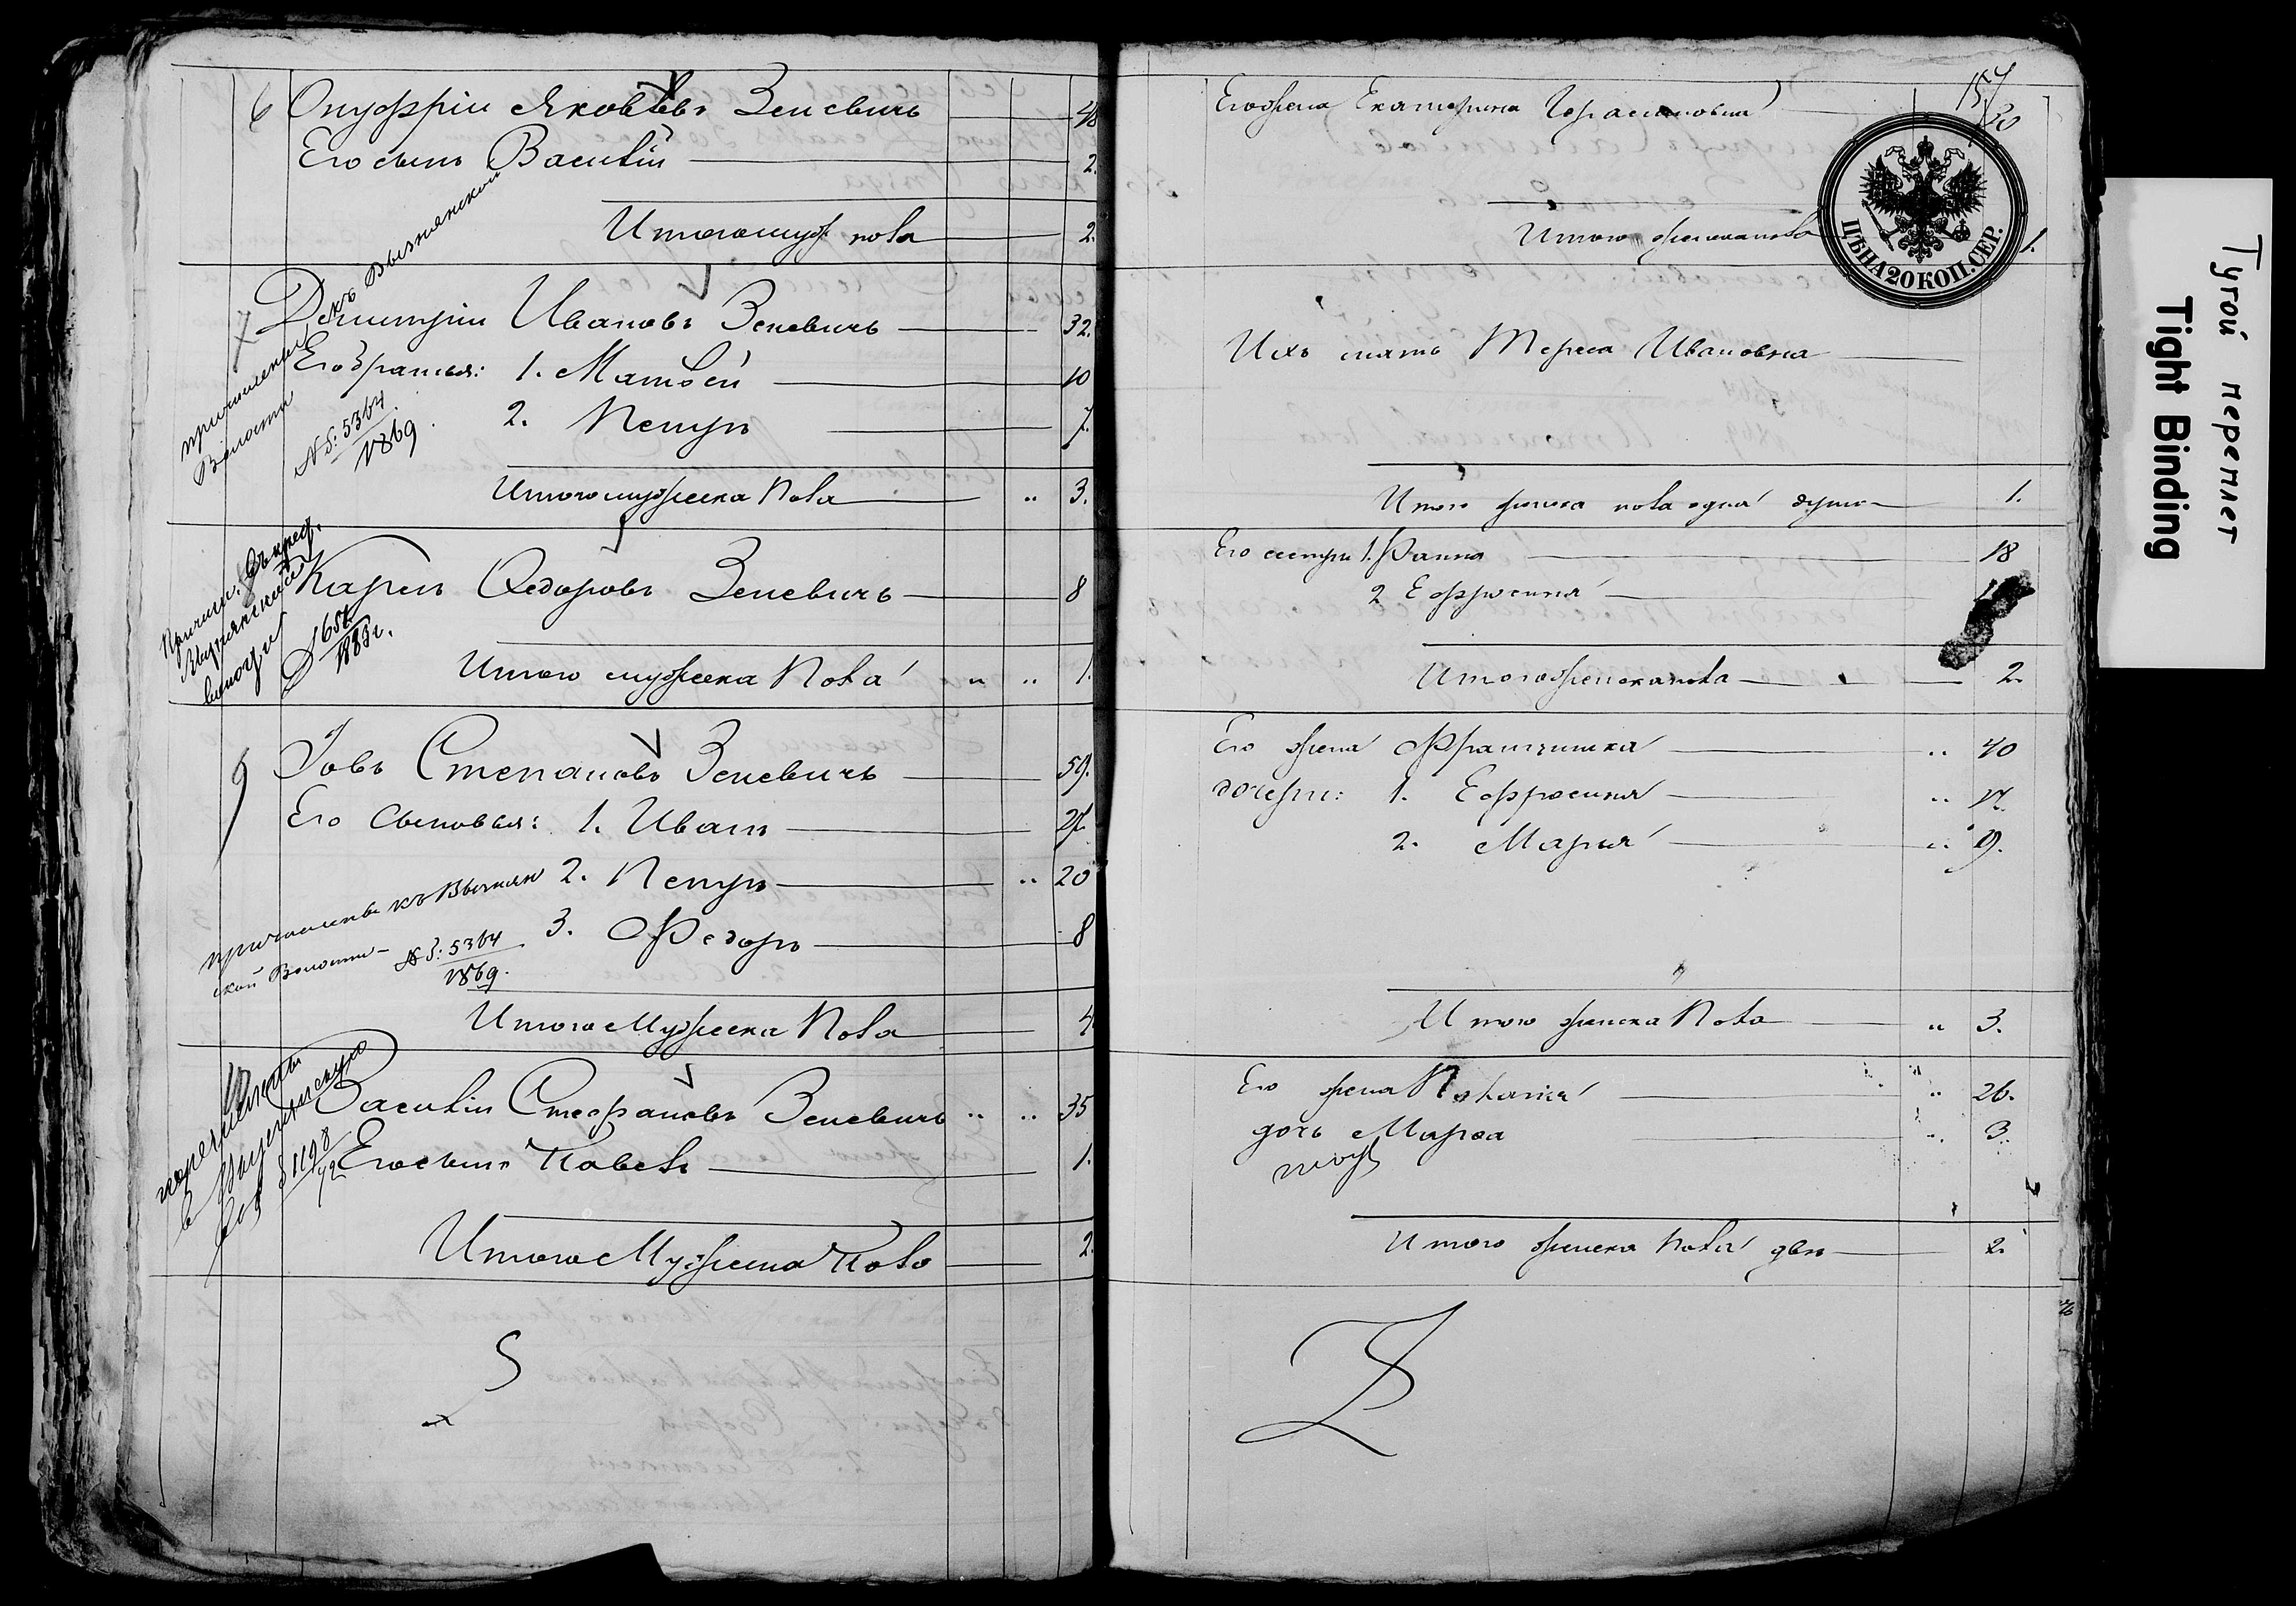 6 Онуфрій Яковлевъ Зеневичъ 48
Его сынъ Василій 2.
Итого муж пола 2.
7 Дмитрій Ивановъ Зеневичъ 32.
Его братья: 1. Матвей 10
2. Петръ 7.
причислены къ Вызнянской
Волости
№ 5364
1869
Итого мужеска пола 3.
Карпъ Федоровъ Зеневичъ 8
Итого мужеска пола 1.
9 Іовъ Степановъ Зеневичъ 59.
Его сыновья: 1. Иванъ 27.
2. Петръ 20
3. Федоръ 8
причислены къ Вызнян
ской Волости
№ 5364
1869.
Итого Мужеска Пола 4
Василій Стефановъ Зеневичъ 35
Его сынъ Павелъ 1.
1198
72
Итого Мужеска Пола 2.
157
Его жена Екатерина Герасимовна 30
Итого женска пола 1.
ЦѢНА 20 КОП. СЕР.
Ихъ мать Тереса Ивановна
Итого женска пола одна душа 1.
Его сестры 1. Ганна 18
2 Ефросинія
Итого женска пола 2.
Его жена Францишка 40
дочери: 1. Ефросинія 17.
2. Марія 9.
Итого женска Пола 3.
Его жена Пелагія 26.
дочь Марѳа 3.
Итого женска пола две 2.
Тугой переплет
Tight Binding